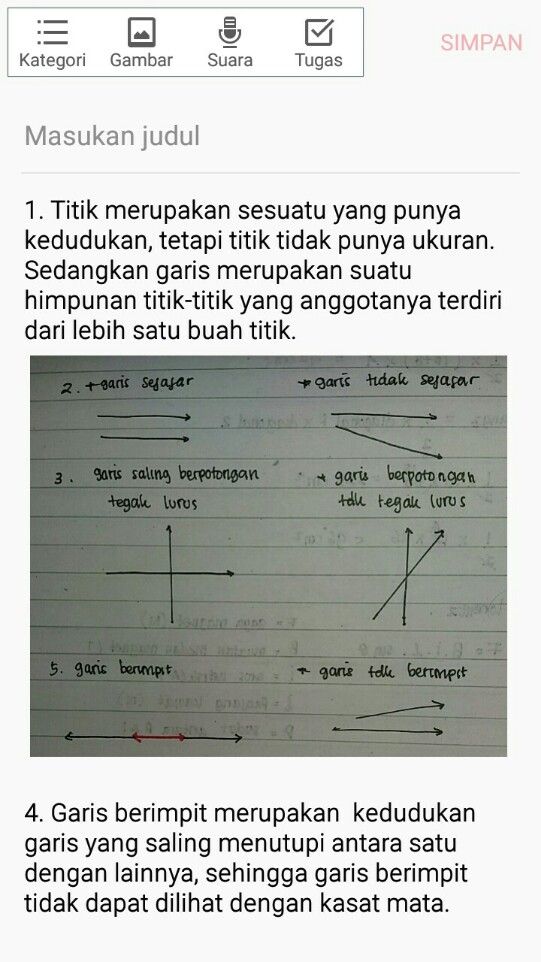 Kategori Gambar Suara Tugas SIMPAN
Masukan judul
1. Titik merupakan sesuatu yang punya
kedudukan, tetapi titik tidak punya ukuran.
Sedangkan garis merupakan suatu
himpunan titik-titik yang anggotanya terdiri
dari lebih satu buah titik.
2. + garis sejajar
* garis tidak sejajar
3. garis saling berpotongan
tegak lurus
* garis berpotongan
tdk tegak lurus
5. garis berimpit
* garis tdk berimpit
4. Garis berimpit merupakan kedudukan
garis yang saling menutupi antara satu
dengan lainnya, sehingga garis berimpit
tidak dapat dilihat dengan kasat mata.